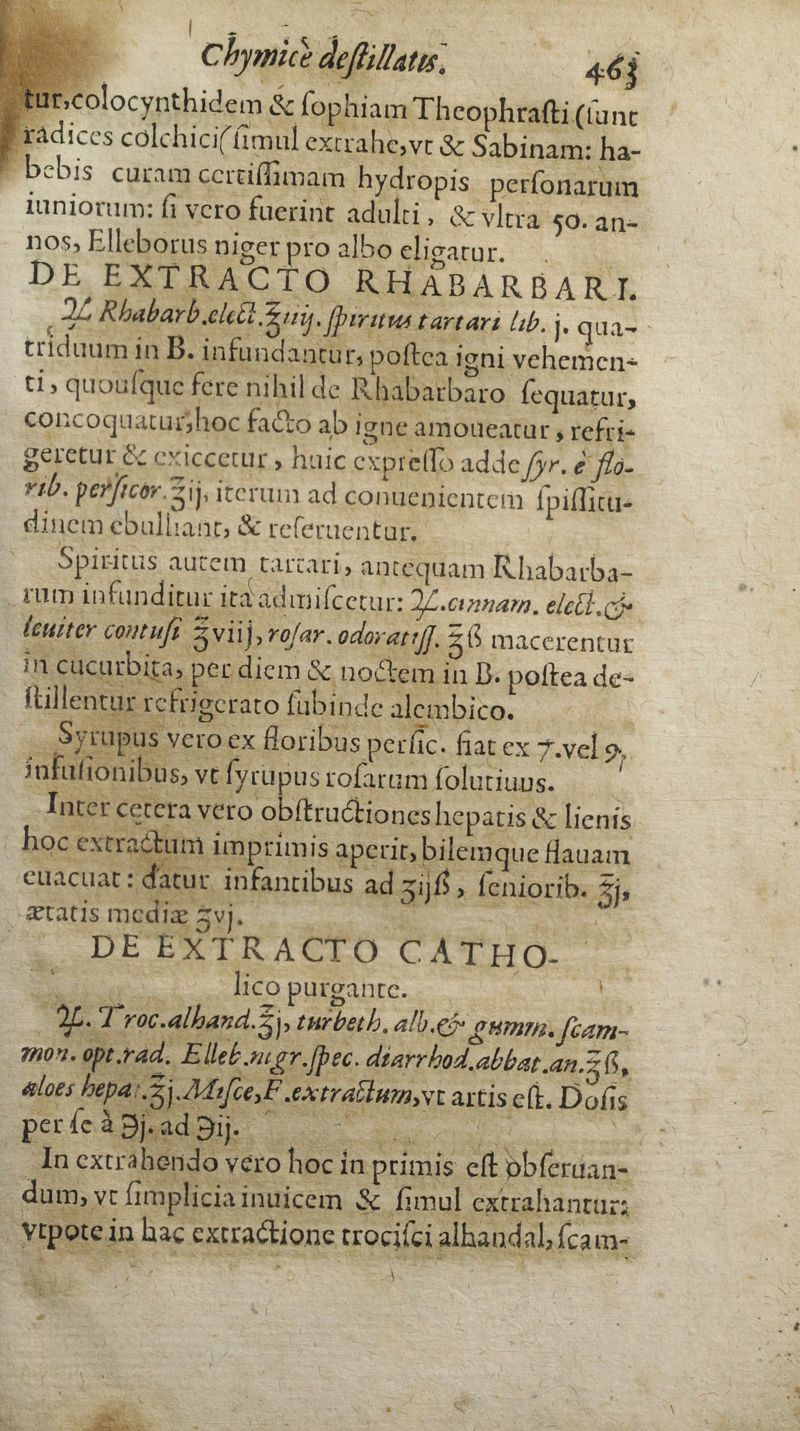 Chymicè deſtillatis. 463
tur, colocynthidem & ſophiam Theophraſti (ſunt
radices colchici (ſimul extrahe, vt & Sabinam: ha-
bebis curam certiſſimam hydropis perſonarum
iuniorum: ſi vero fuerint adulti, & vltra 50. an-
nos, Elleborus niger pro albo eligatur.
DE EXTRACTO RHABARBARI.
♃ Rhabarb. elect. ℥iiij. ſpiritus tartari lib. j. qua-
triduum in B. infundantur, poſtea igni vehemen-
ti, quouſque fere nihil de Rhabarbaro ſequatur,
concoquatur, hoc facto ab igne amoueatur, refri-
geretur & exiccetur, huic expreſſo adde ſyr. è flo-
rib. perſicor. ℥ij, iterum ad conuenientem ſpiſſitu-
dinem ebulliant, & reſeruentur.
Spiritus autem tartari, antequam Rhabarba-
rum infunditur ita admiſcetur: ♃. cinnam. elect. &
leuiter contuſi ʒviij, roſar. odoratiſſ. ℥ß macerentur
in cucurbita, per diem & noctem in B. poſtea de-
ſtillentur refrigerato ſubinde alembico.
Syrupus vero ex floribus perſic. fiat ex 7. vel 9.
infuſionibus, vt ſyrupus roſarum ſolutiuus.
Inter cetera vero obſtructiones hepatis & lienis
hoc extractum imprimis aperit, bilemque flauam
euacuat: datur infantibus ad ʒijß, ſeniorib. ℥j,
ætatis mediæ ʒvj.
DE EXTRACTO CATHO-
lico purgante.
♃. Troc. alhand. ℥j, turbeth. alb. & gumm. ſcam-
mon. opt. rad. Elleb. nigr. ſpec. diarrhod. abbat. an. ℥ß,
aloes hepat. ℥j. Miſce, F. extractum, vt artis eſt. Doſis
per ſe à ℈j. ad ℈ij.
In extrahendo vero hoc in primis eſt obſeruan-
dum, vt ſimplicia inuicem & ſimul extrahantur:
vtpote in hac extractione trociſci alhandal, ſcam-